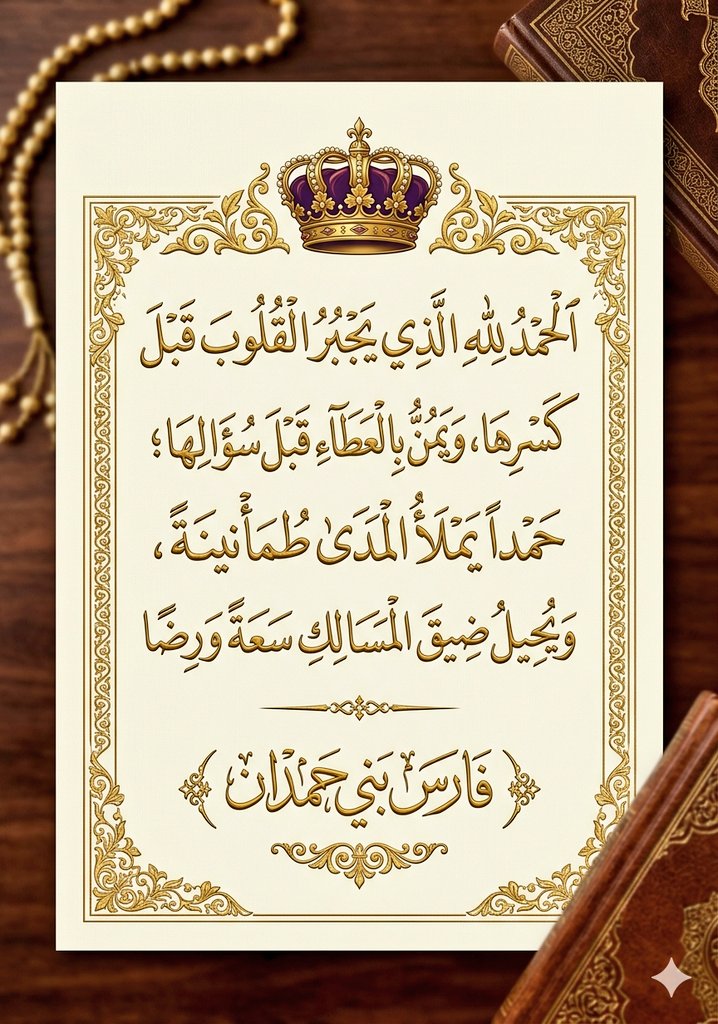 اَلْحَمْدُ لِلّٰهِ الَّذِي يَجْبُرُ الْقُلُوبَ قَبْلَ
كَسْرِهَا، وَيَمُنُّ بِالْعَطَآءِ قَبْلَ سُؤَالِهَا؛
حَمْداً يَمْلَأُ الْمَدَىٰ طُمَأْنِينَةً،
وَيُحِيلُ ضِيقَ الْمَسَالِكِ سَعَةً وَرِضًا
﴿ فَارَسَ بَنِي حَمْدَان ﴾